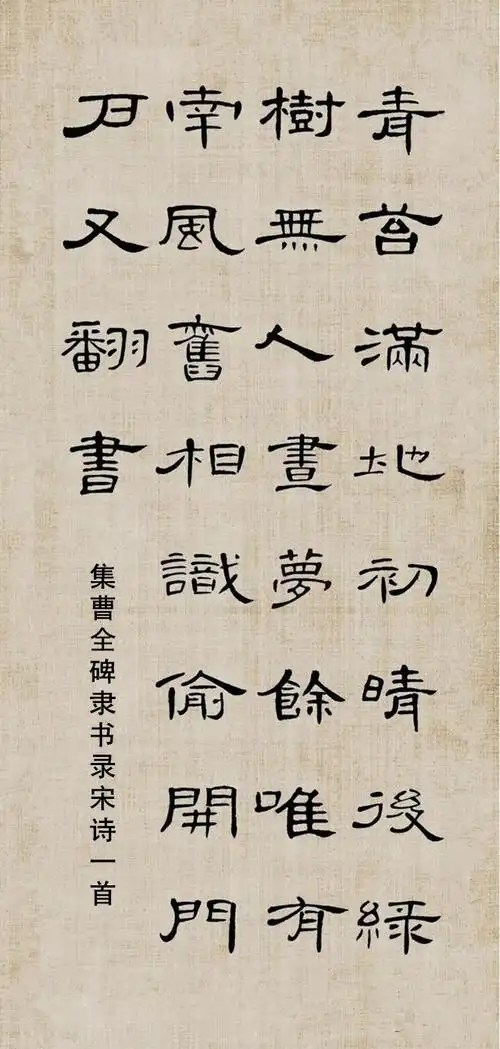 青苔滿地初晴後綠
樹無人晝夢餘唯有
南風舊相識偷開門
戶又翻書
集曹全碑隶书录宋诗一首